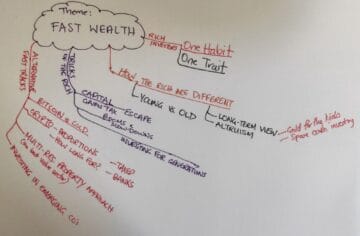 Theme:
FAST WEALTH
RICH
INVESTORS
One Habit
One Trait
How THE RICH ARE DIFFERENT
YOUNG vs OLD
LONG-TERM VIEW
ALTRUISM
Gold for the kids
Space cadet investing
TRICKS
OF THE RICH
CAPITAL
GAINS TAX ESCAPE
BOOMS &
SLOW-DOWNS
INVESTING FOR GENERATIONS
ALTERNATIVE
FAST TRACKS
BITCOIN vs GOLD
CRYPTO - PREDICTIONS
HOW LONG FOR?
BANKS
MULTI-RES PROPERTY APPROACH
INVESTING IN EMERGING CO'S